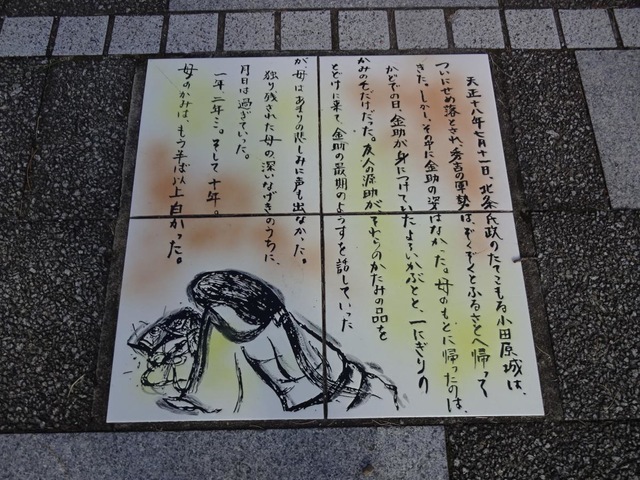 天正十八年七月十一日、北条氏政のたてこもる小田原城は、
ついにせめ落とされ、秀吉の軍勢は、ぞくぞくとふるさとへ帰って
きた。しかし、その中に金助の姿はなかった。母のもとに帰ったのは、
かどでの日、金助が身につけていたよろいかぶとと、一にぎりの
かみのそだけだった。友人の源助が、それらのかたみの品を
とどけに来て、金助の最期のようすを話していった
が、母はあまりの悲しみに声も出なかった。
独り残された母の深いなげきのうちに、
月日は過ぎていった。
一年、二年、そして十年。
母のかみは、もう半ば以上白かった。